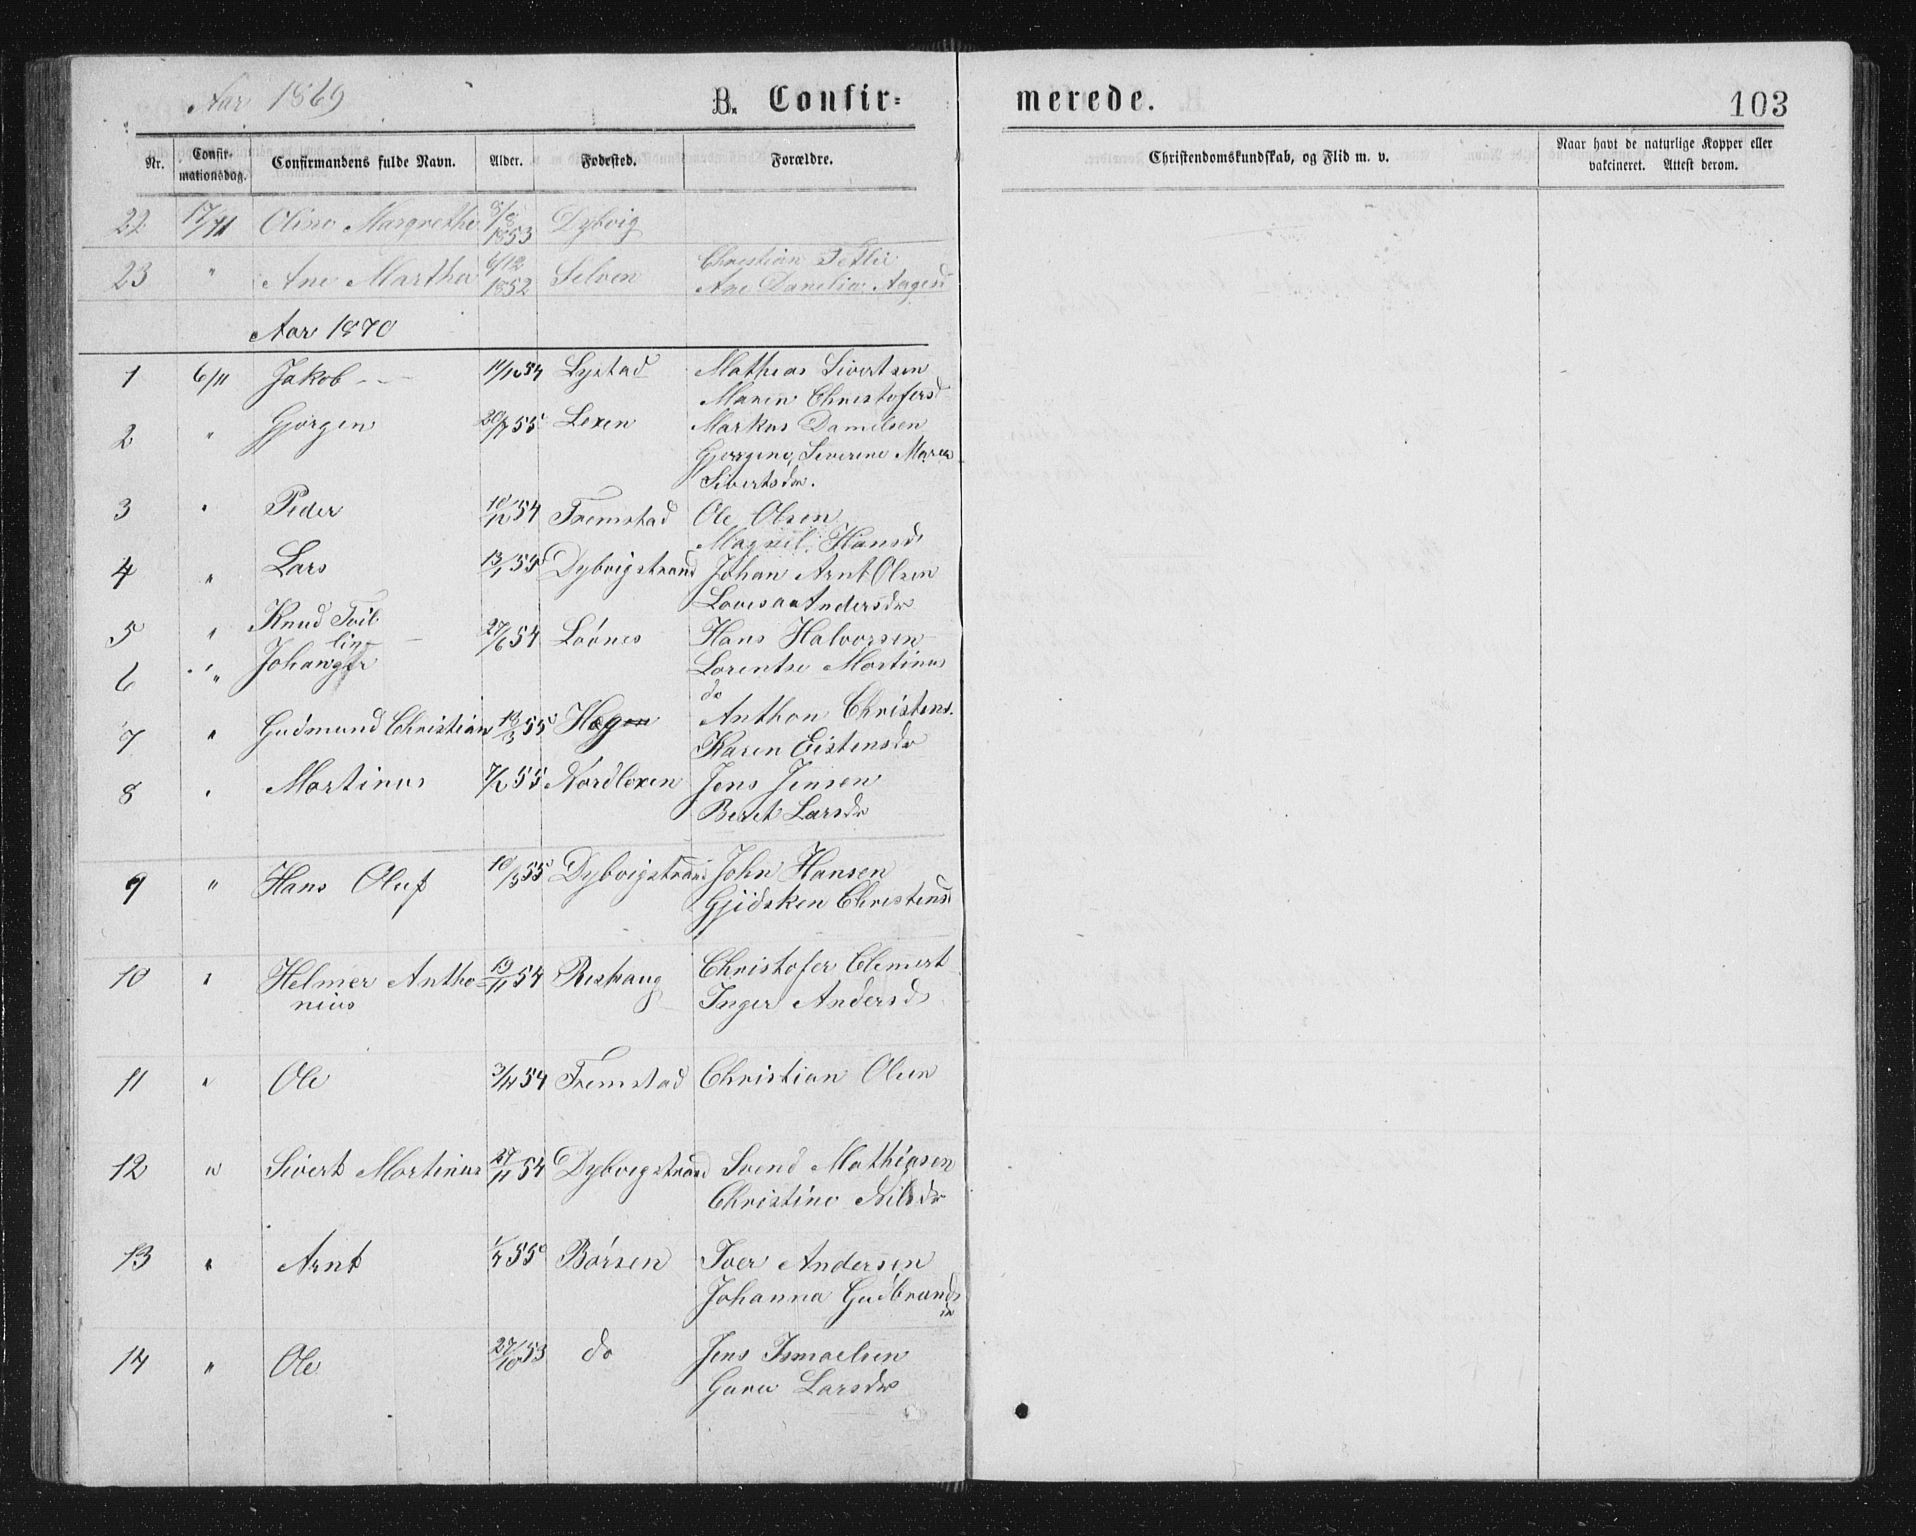 Aar 1869
B. Confir-
merede.
103
Nr. Confir-mationsdag. Confirmandens fulde Navn. Alder. Fødested. Forældre. Christendomskundskab, og Flid m. v. Naar havt de naturlige Kopper eller vakcineret. Attest derom.
22 17/11 Oline Margrethe 8/8 1853 Dybvig
23 " Ane Martha 6/12 1852 Selven Christian
Ane Danelia Aagesd
Aar 1870
1 6/11 Jakob 11/10 54 Lystad Mathias Sivertsen
Maren Christofersd
2 " Gjørgen 20/7 55 Lexen Markus Danielsen
Gjørgine, Severine Maren
Sivertsdr.
3 " Peder 10/12 54 Fremstad Ole Olsen
Magnil. Hansd
4 " Lars 13/1 55 Dybvigstrand Johan Arnt Olsen
Lovesa Andersdr
5 " Knud Tvil 27/6 54 Loönes Hans Halvorsen
lin
6 " Johan ger Lorentse Martinus
do
7 " Gudmund Christian 13/3 55 Hagen Anthon Christens.
Karen Eistensdr
8 " Martinus 7/2 55 Nordlexen Jens Jensen
Berit Larsdr
9 " Hans Oluf 10/3 55 Dybvigstrand John Hansen
Gjidsken Christensd
10 " Helmer Antho- 19/11 54 Reshaug Christofer Clemert
nius Inger Andersd
11 " Ole 3/11 54 Fremstad Christian Olsen
12 " Sivert Martinus 27/11 54 Dybvigstrand Svend Mathiasen
Christine Nilsdr
13 " Arnt 1/7 55 Börsen Iver Andersen
Johanna Gudbrands
dr
14 " Ole 27/10 53 do Jens Ismaelsen
Larsdr